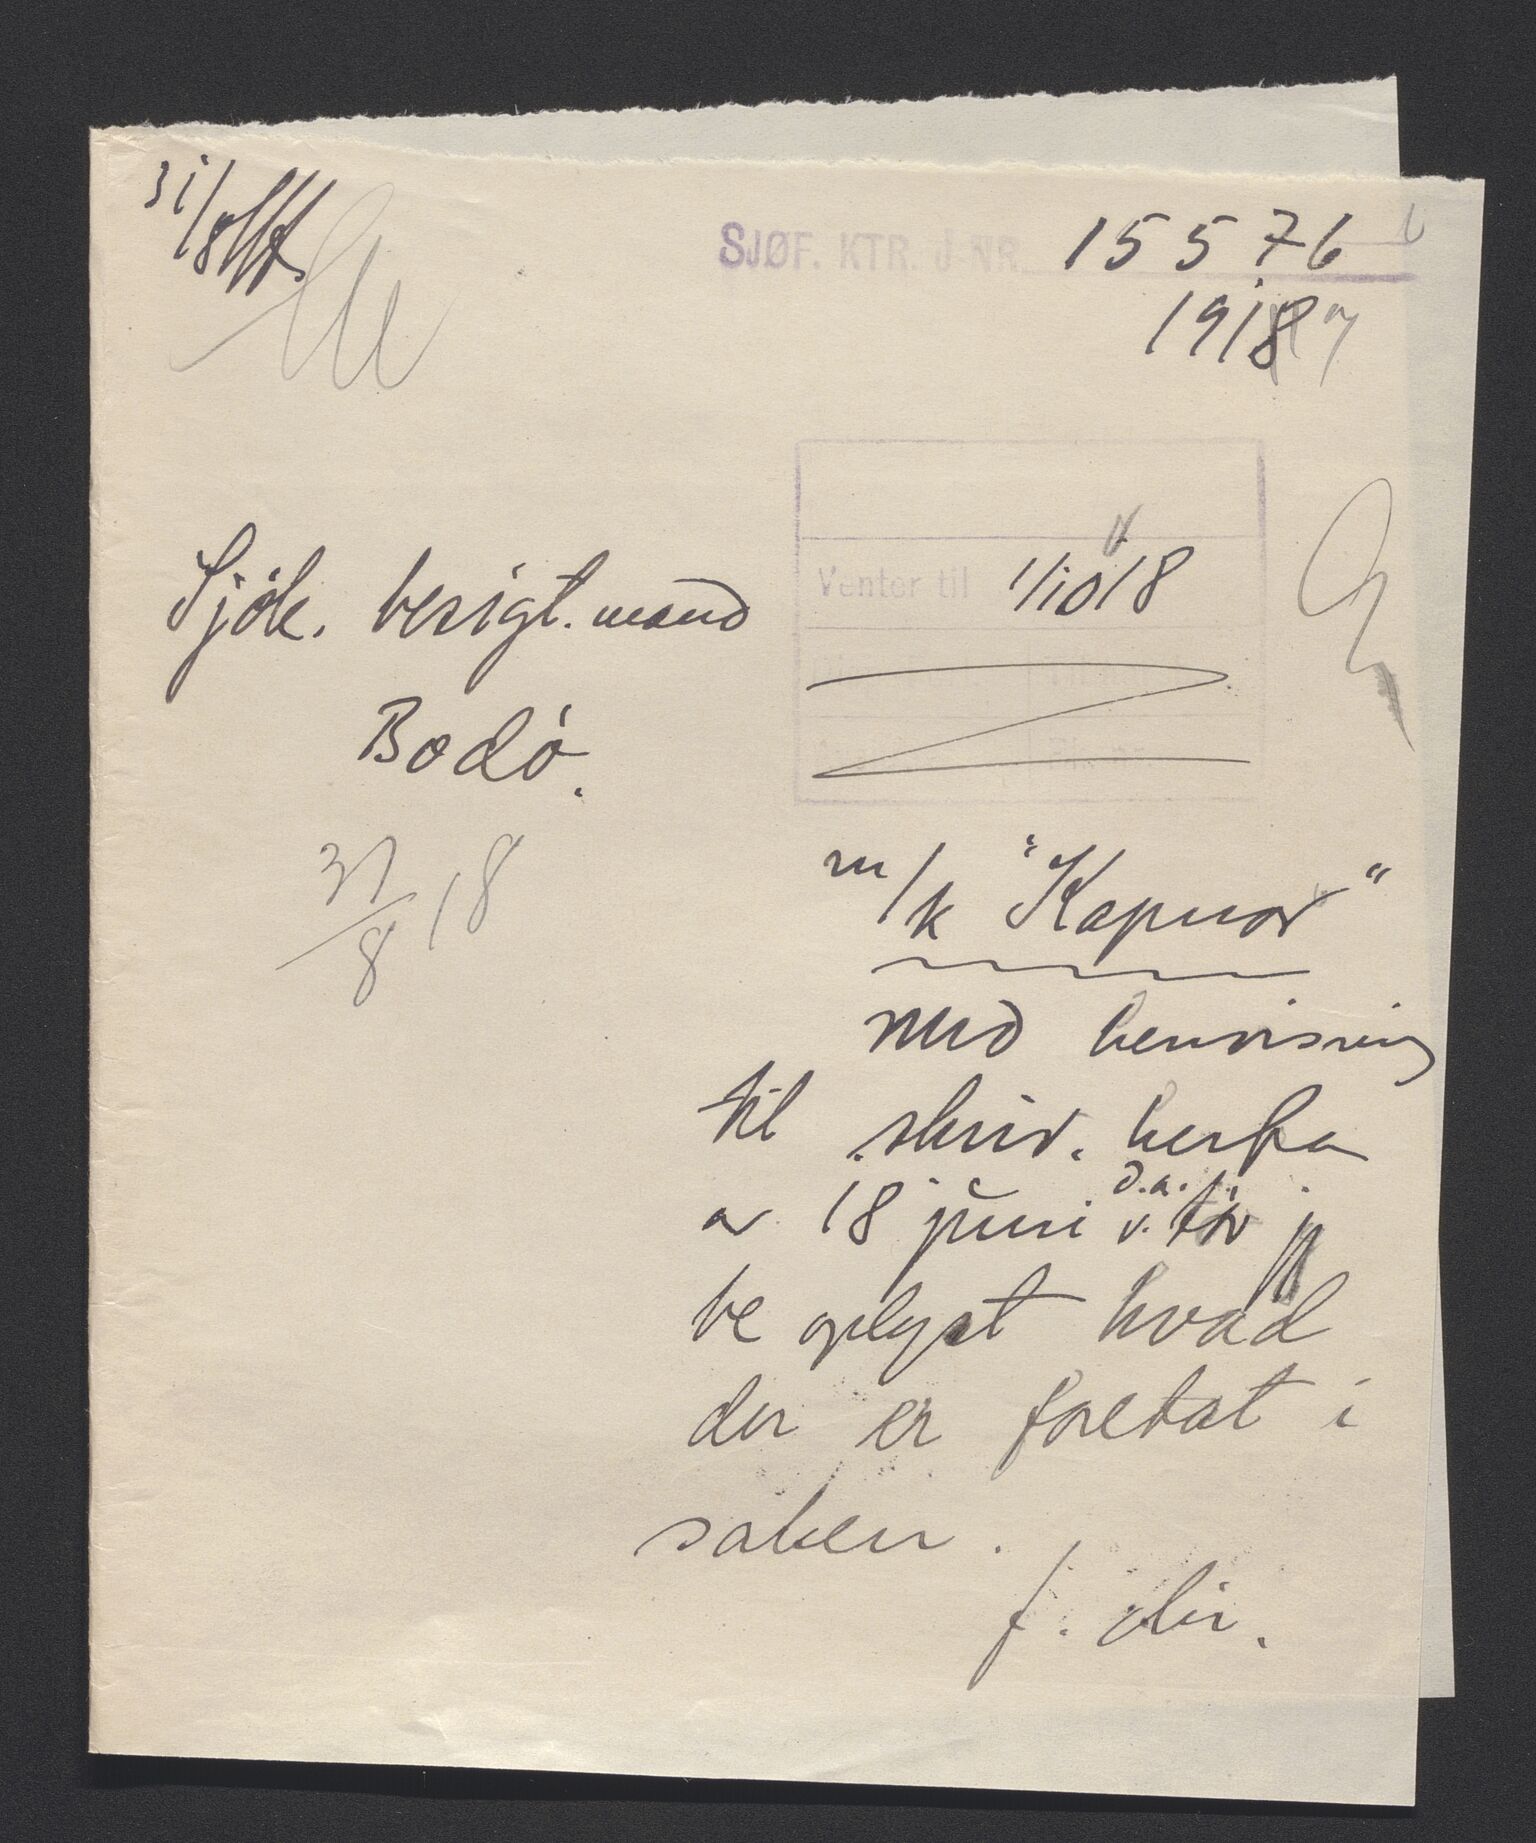 31/8
SJØF. KTR. J-NR. 15576
1918 7
Venter til 1/10 18
Sjøk. besigt. mand
Bodø.
31/8 18
m/k "Kapnor"
med henvisning
til skriv. herfra
av 18 juni d.a. v. tør j
be oplyst hvad
der er foretat i
saken.
f. dir.